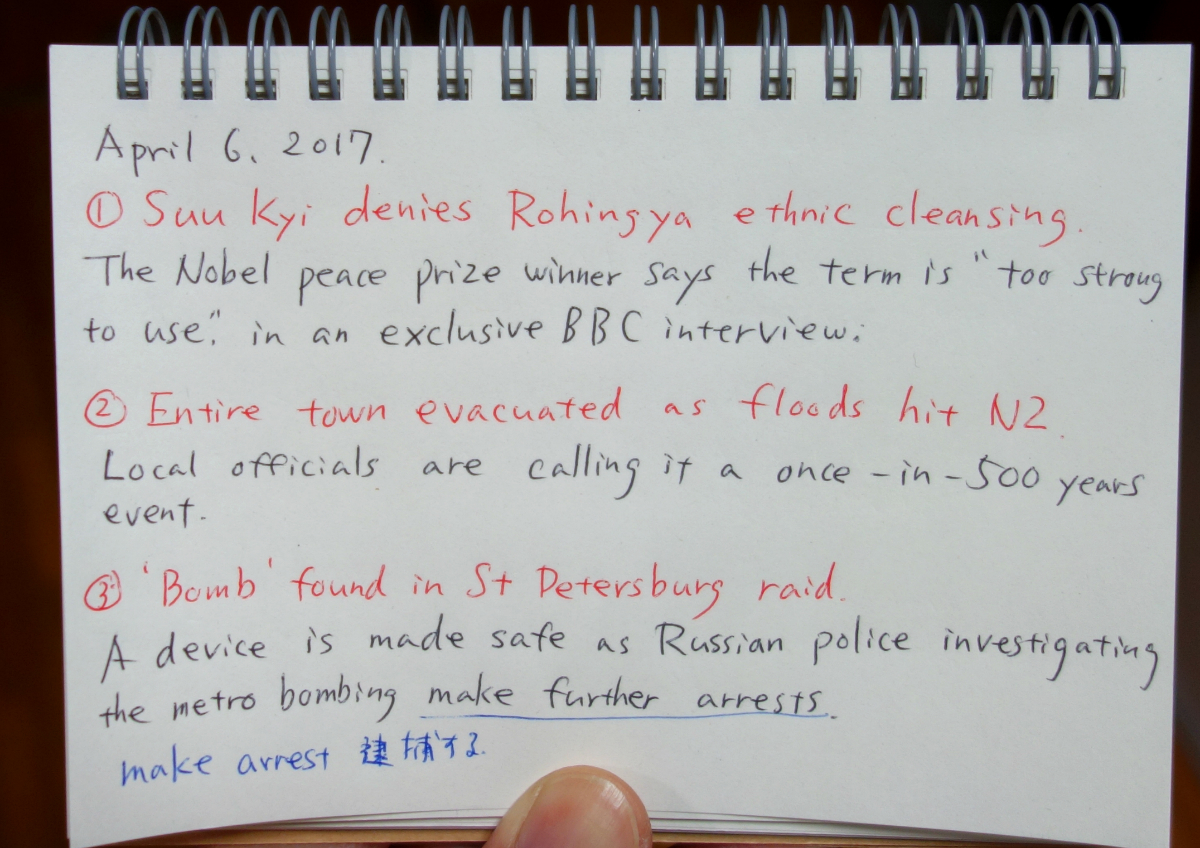 April 6, 2017.
① Suu Kyi denies Rohingya ethnic cleansing.
The Nobel peace prize winner says the term is "too strong
to use." in an exclusive BBC interview.
② Entire town evacuated as floods hit NZ.
Local officials are calling it a once-in-500 years
event.
③ 'Bomb' found in St Petersburg raid.
A device is made safe as Russian police investigating
the metro bombing make further arrests.
make arrest 逮捕する.